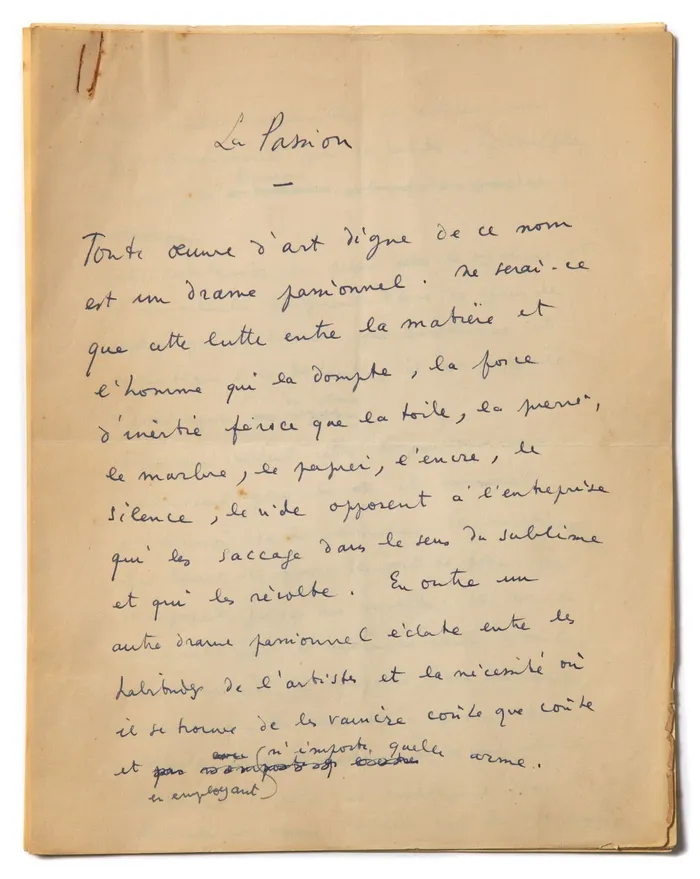 La Passion
Toute œuvre d'art digne de ce nom
est un drame passionnel. Ne serai-ce
que cette lutte entre la matière et
l'homme qui la dompte, la force
d'inertie féroce que la toile, la pierre,
le marbre, le papier, l'encre, le
silence, le vide opposent à l'entreprise
qui les saccage dans le sens du sublime
et qui les récolte. En outre un
autre drame passionnel éclate entre les
habitudes de l'artiste et la nécessité où
il se trouve de les vaincre coûte que coûte
et (n'importe quelle arme.
en employant)